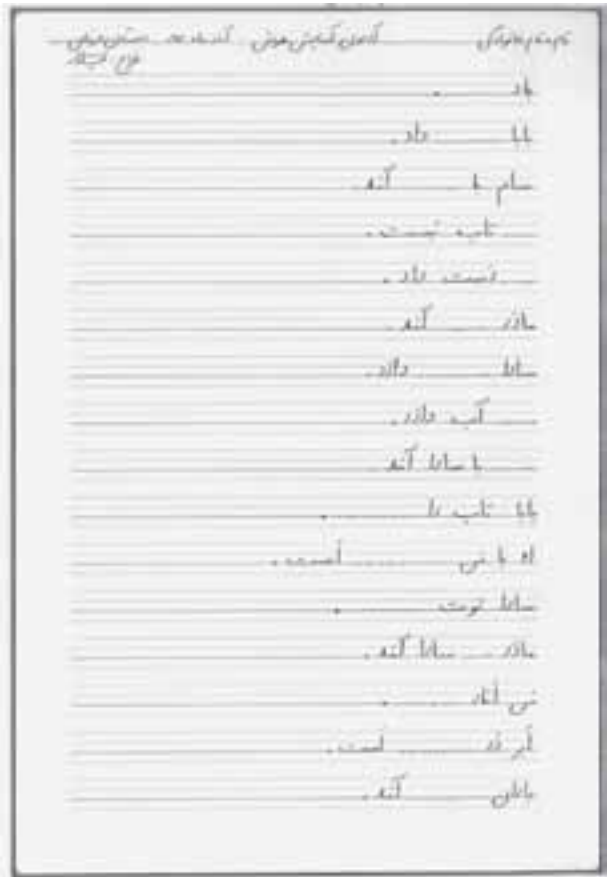 نام و نام خانوادگی
باد ........ .
بابا ........ داد.
سام با ........ آمد.
........ تاب بست.
........ دست داد.
مادر ........ آمد.
سارا ........ دارد.
........ آب دارد.
........ با سارا آمد.
بابا تاب را ........ .
او با من ........ است.
سارا توت ........ .
مادر ........ سارا آمد.
من انار ........ .
ابر در ........ است.
باران ........ آمد.